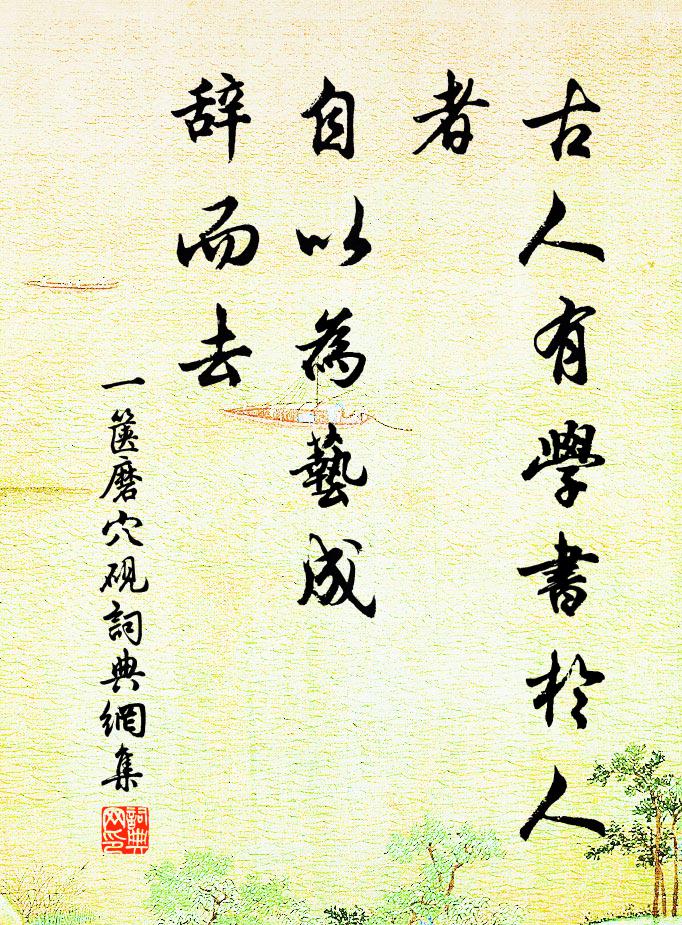 古人有學書於人
者
自以為藝成
辞而去
一篋磨穴硯詞典網集
詞典
网印